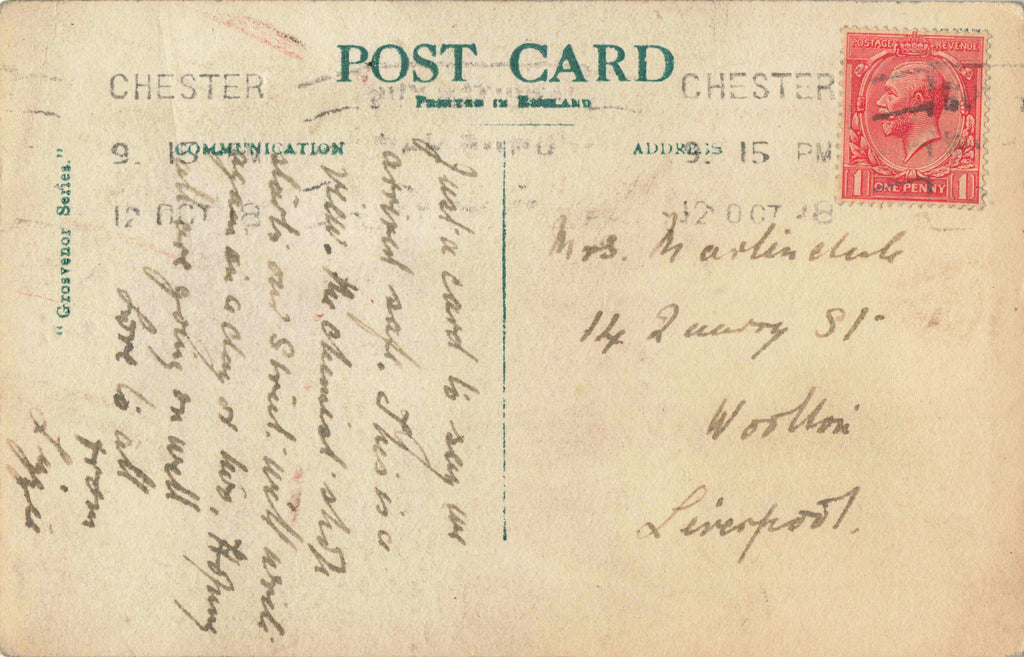 POST CARD
PRINTED IN ENGLAND
CHESTER
9. 15 PM
12 OCT 18
CHESTER
9. 15 PM
12 OCT 18
POSTAGE REVENUE
1 ONE PENNY 1
COMMUNICATION
ADDRESS
"Grosvenor Series."
Just a card to say we
arrived safe. This is a
view. the chemist shop
starts our Street. will write
again in a day or two. Hoping
all are going on well
Love to all
from
Lizzie
Mrs. Martindale
14 Quarry St
Woolton
Liverpool.